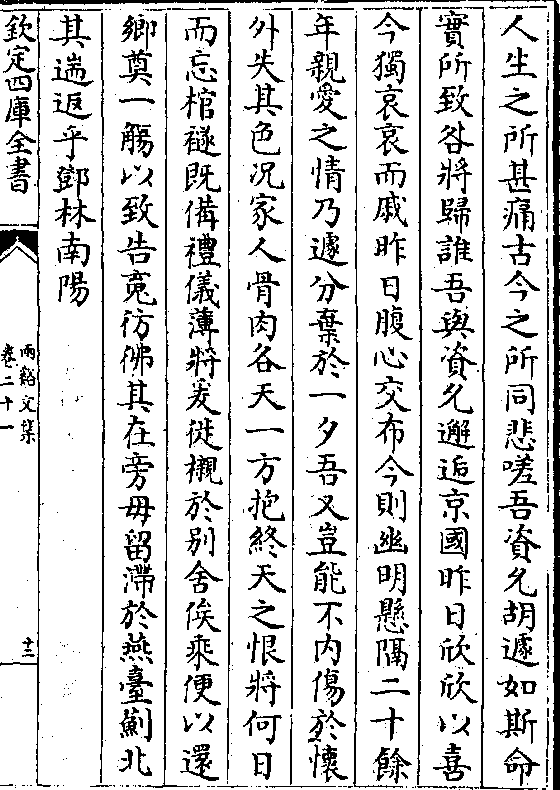 人生之所甚痛古今之所同悲嗟吾資允胡遽如斯命
實所致咎將歸誰吾與資允邂逅京國昨日欣欣以喜
今獨哀哀而戚昨日腹心交布今則幽明懸隔二十餘
年親愛之情乃遽分棄於一夕吾又豈能不内傷於懷
外失其色况家人骨肉各天一方抱終天之恨將何日
而忘棺襚既備禮儀薄將爰從櫬於别舍俟乘便以還
鄉奠一觴以致告竟彷佛其在旁毋留滯於燕臺薊北
其遄返乎鄧林南陽
欽定四庫全書
兩谿文集
卷二十一
十三